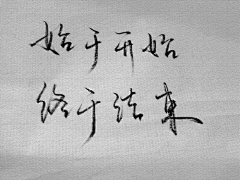 始于开始
终于结束